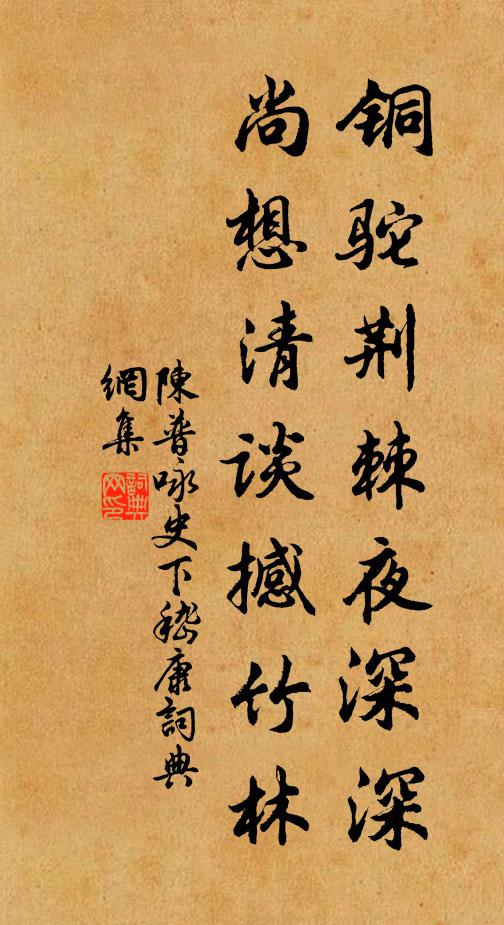 铜驼荆棘夜深深
尚想清谈撼竹林
陳普咏史下嵇康詞典
網集
詞典网印